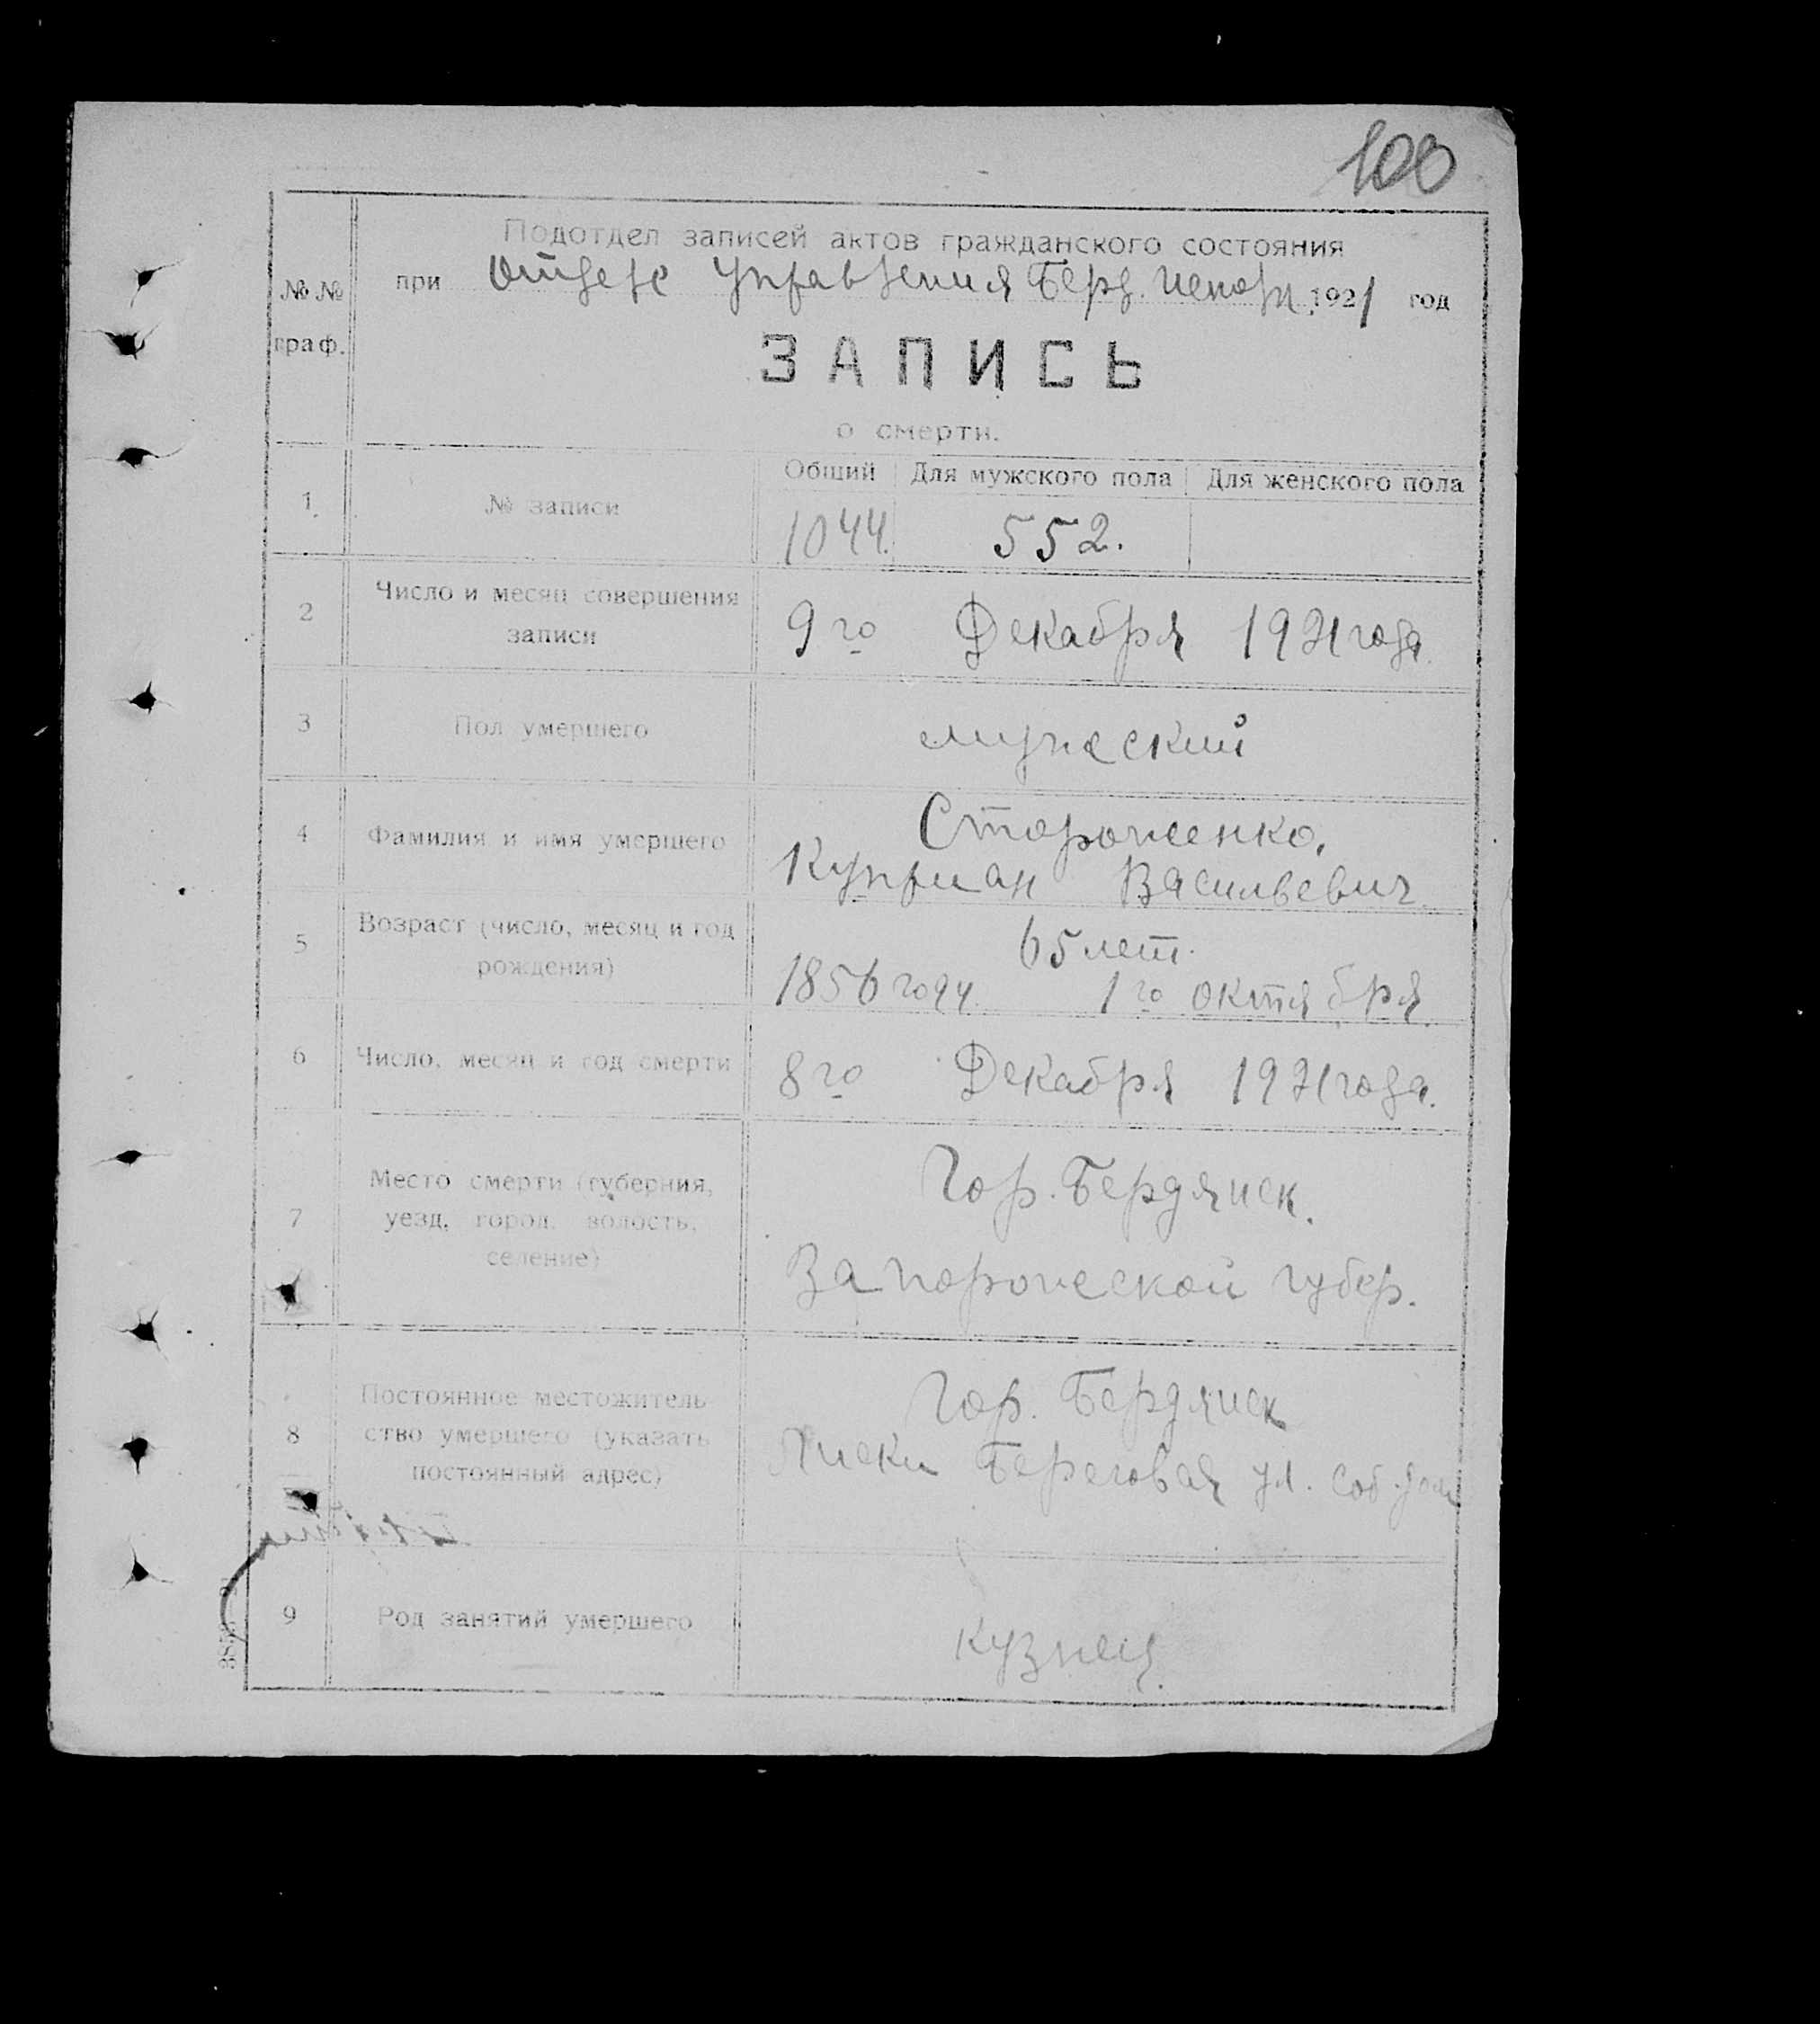 100
Подотдел записей актов гражданского состояния
при Отделе Управления Берд. Исполк. 1921 год
№ № граф.
ЗАПИСЬ
о смерти.
Общий Для мужского пола Для женского пола
1 № записи 1044. 552.
2 Число и месяц совершения
записи
9го Декабря 1921 года.
3 Пол умершего мужеский
4 Фамилия и имя умершего
Стороженко,
Куприан Васильевич.
5 Возраст (число, месяц и год
рождения)
65 лет.
1856 году. 1го октября.
6 Число, месяц и год смерти 8го Декабря 1921 года.
7 Место смерти (губерния,
уезд, город, волость,
селение)
Гор. Бердянск.
Запорожской губер.
8 Постоянное местожитель-
ство умершего (указать
постоянный адрес)
Гор. Бердянск
Лиски Береговая ул. соб. дом
9 Род занятий умершего кузнец.